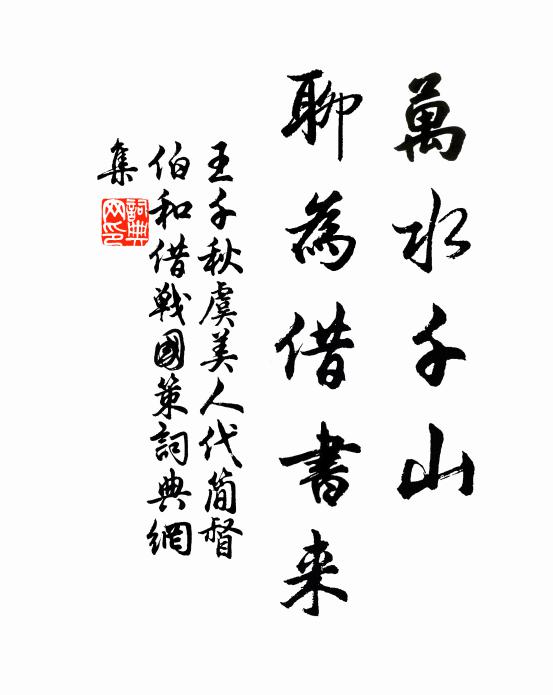 萬水千山
聊為借書来
王千秋虞美人代簡督
伯和借戰國策詞典網
集
詞典網印